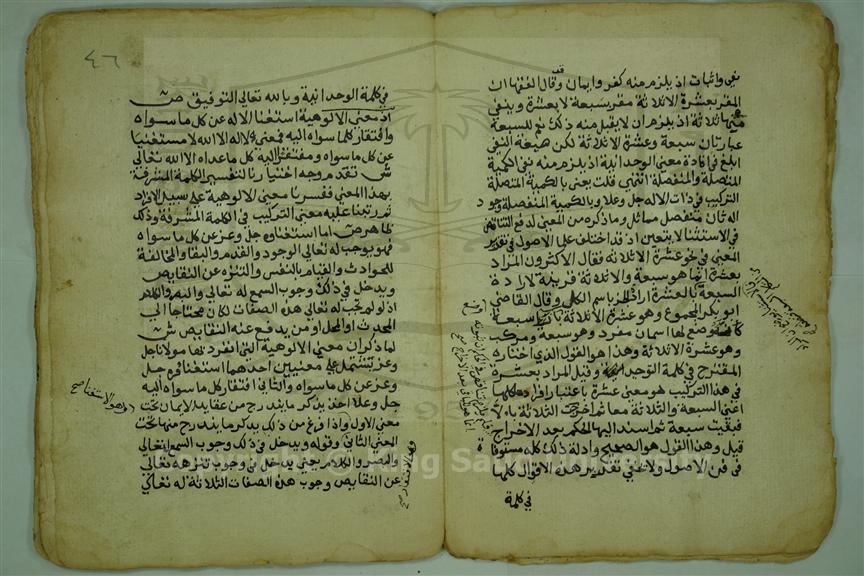 نفي واثبات اذ يلزم منه كفر وايمان وقال الفقهاء ان
المقر بعشرة الا ثلاثة مقر بسبعة لا بعشرة وينفي
منها ثلاثة اذ يلزم ان لا يقبل منه ذلك نعم للسبعة
عبارتان سبعة وعشرة الا ثلاثة لكن صيغة النفي
ابلغ في افادة معنى الوحدانية اذ يلزم منه نفي الكمية
المتصلة والمنفصلة انتهى قلت يعني بالكمية المتصلة
التركيب في ذات الاله جل وعلا وبالكمية المنفصلة وجود
اله ثان منفصل مماثل وما ذكره من المعنى لدفع التناقض
في الاستثنا لا يتعين اذ قد اختلف علما الاصول في تقرير
المعنى في نحو عشرة الا ثلاثة فقال الاكثرون المراد
بعشرة انما هو سبعة والا ثلاثة قرينة لارادة
السبعة بالعشرة ارادة الجزء باسم الكل وقال القاضي
ابو بكر المجموع وهو عشرة الا ثلاثة بازاء سبعة
كأنه وضع لها اسمان مفرد وهو سبعة ومركب
وهو عشرة الا ثلاثة وهذا هو القول الذي اختاره
المقترح في كلمة التوحيد وقيل المراد بعشرة
في هذا التركيب هو معنى عشرة باعتبار افراده كلها
اعني السبعة والثلاثة معا ثم اخرجت الثلاثة بالا
فبقيت سبعة ثم اسند اليها الحكم بعد الاخراج
قيل وهذا القول هو الصحيح وادلة ذلك كله مستوفاة
في فن الاصول ولا يخفى تقدير هذه الاقوال كلها
في كلمة
٤٦
في كلمة الوحدانية وبالله تعالى التوفيق ص
اذ معنى الالوهية استغنا الاله عن كل ما سواه
وافتقار كلما سواه اليه فمعنى لا اله الا الله لا مستغنيا
عن كل ما سواه ومفتقرا اليه كل ما عداه الا الله تعالى
ش تقدم وجه اختيارنا لتفسير الكلمة المشرفة
بهذا المعنى ففسرنا معنى الالوهية على سبيل الافراد
ثم رتبنا عليه معنى التركيب في الكلمة المشرفة وذلك
ظاهر ص اما استغناوه جل وعز عن كل ما سواه
فهو يوجب له تعالى الوجود والقدم والبقا والمخالفة
للحوادث والقيام بالنفس والتنزه عن النقايص
ويدخل في ذلك وجوب السمع له تعالى والبصر والكلام
اذ لو لم تجب له تعالى هذه الصفات لكان محتاجا الى
المحدث او المحل او من يدفع عنه النقايص ش
لما ذكر ان معنى الالوهية التي انفرد بها مولانا جل
وعز تشتمل على معنيين احدهما استغناوه جل
وعز عن كل ما سواه والثاني افتقار كل ما سواه اليه
جل وعلا اخذ يذكر ما يندرج من عقايد الايمان تحت
معنى الاول واذا فرغ من ذلك يذكر ما يندرج منها تحت
المعنى الثاني وقوله ويدخل في ذلك وجوب السمع له تعالى
والبصر والكلام يعني يدخل في وجوب تنزهه تعالى
عن النقايص وجوب هذه الصفات الثلاثة له تعالى
وهو الاستغنا صح
وهو الافتقار صح